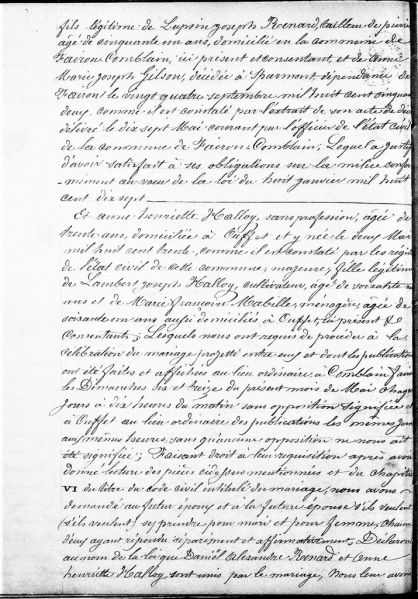 fils légitime de Lupsin Joseph Renard, tailleur de pierre
agé de cinquante un ans, domicilié en la commune de
Fairon Comblain, ici présent et consentant, et de Anne
Marie Joseph Gilson, décédée à Sparmont dépendance de
Fairon le vingt quatre septembre mil huit cent cinquante
deux, comme il est constaté par l'extrait de son acte de décès
délivré le dix sept Mai courant par l'officier de l'état civil
de la commune de Fairon-Comblain, Lequel a justifié
d'avoir satisfait à ses obligations sur la milice confor-
mément au vœu de la loi du huit janvier mil huit
cent dix sept
Et Anne henriette Halloy, sans profession, âgée de
trente ans, domiciliée à Ouffet et y née le deux Mars
mil huit cent trente, comme il est constaté par les régis
de l'état civil de cette commune, majeure, fille légitime
de Lambert Joseph Halloy, cultivateur, âgé de soixante
ans et de Marie françoise Mabille, ménagère, âgée de
soixante un ans aussi domiciliés à Ouffet, ici présent &
Consentants; Lesquels nous ont requis de procéder à la
célébration du mariage projetté entre eux et dont les publications
ont été faites et affichées au lieu ordinaire à Comblain fairon
les Dimanches six et treize du présent mois de Mai chaque
jours à dix heures du matin sans opposition signifiée et
à Ouffet au lieu ordinaire des publications les mêmes jours
aux mêmes heures, sans qu'aucune opposition ne nous ait
été signifiée; Faisant droit à leur requisition après avoir
donné lecture des pièces cidessus mentionnées et du chapitre
VI du titre du code civil intitulé du mariage, nous avons
demandé au futur époux et à la future épouse s'ils veulent
(s'ils veulent) se prendre pour mari et pour femme, chacun
deux ayant répondu séparément et affirmativement, Déclarons
au nom de la loi que Daniel Alexandre Renard et Anne
henriette Halloy, sont unis par le mariage, Nous leur avons